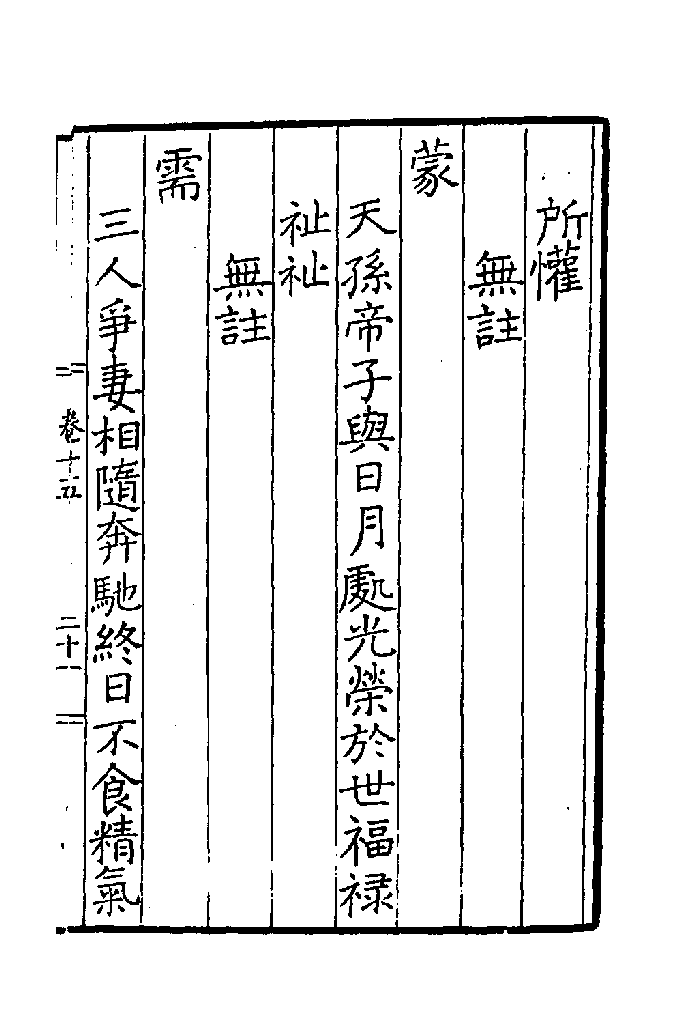 所懽
無註
蒙
天孫帝子與日月處光榮於世福祿
祉祉
無註
需
三人爭妻相隨奔馳終日不食精氣
卷十五
二十一